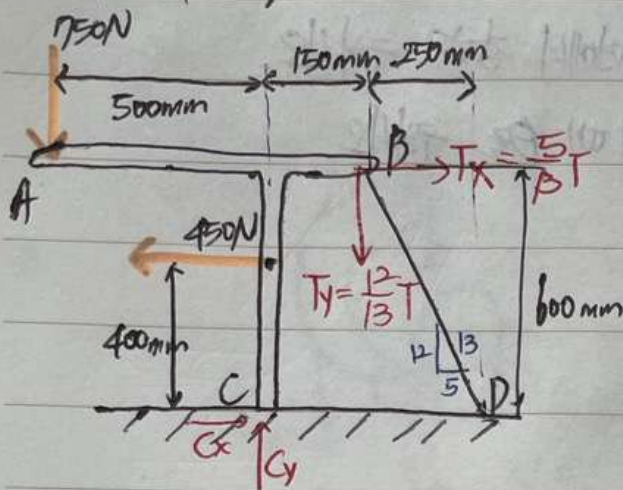 750N
150mm 250mm
500mm
B
Tx = 5/13 T
A
450N
Ty = 12/13 T
600mm
400mm
12 13
5
C D
Cx
Cy